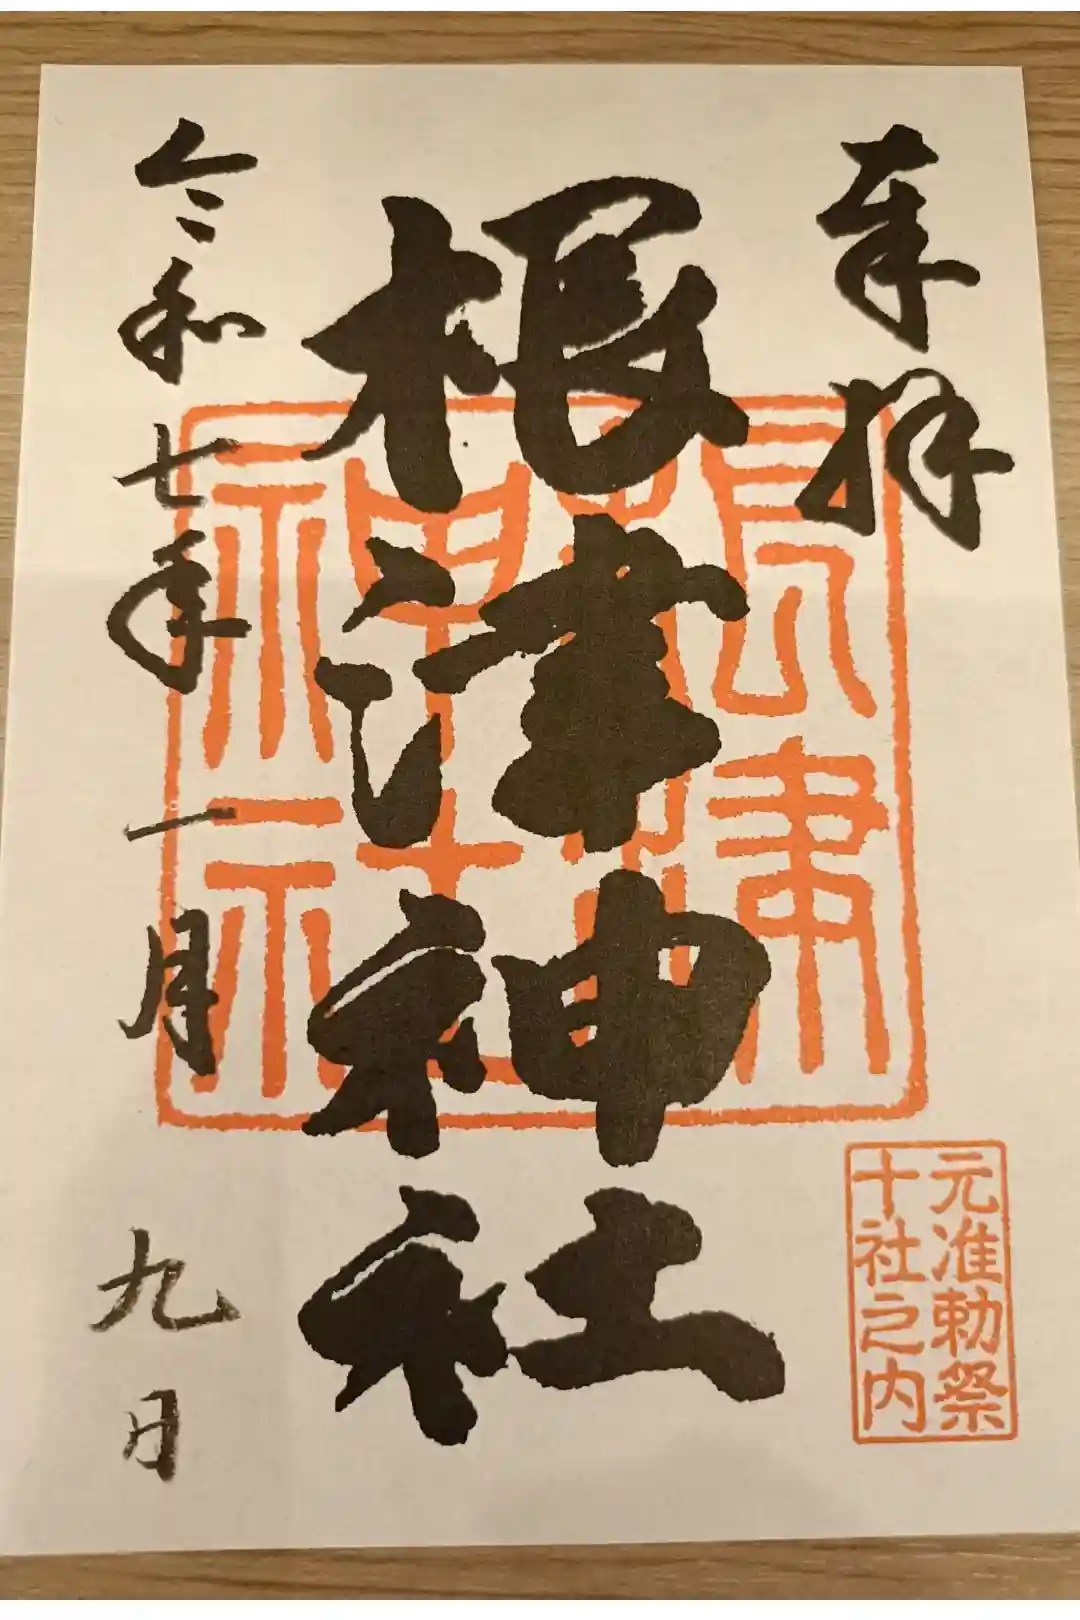 奉拝
根津神社
根津
神社
元准勅祭
十社之内
令和七年一月九日